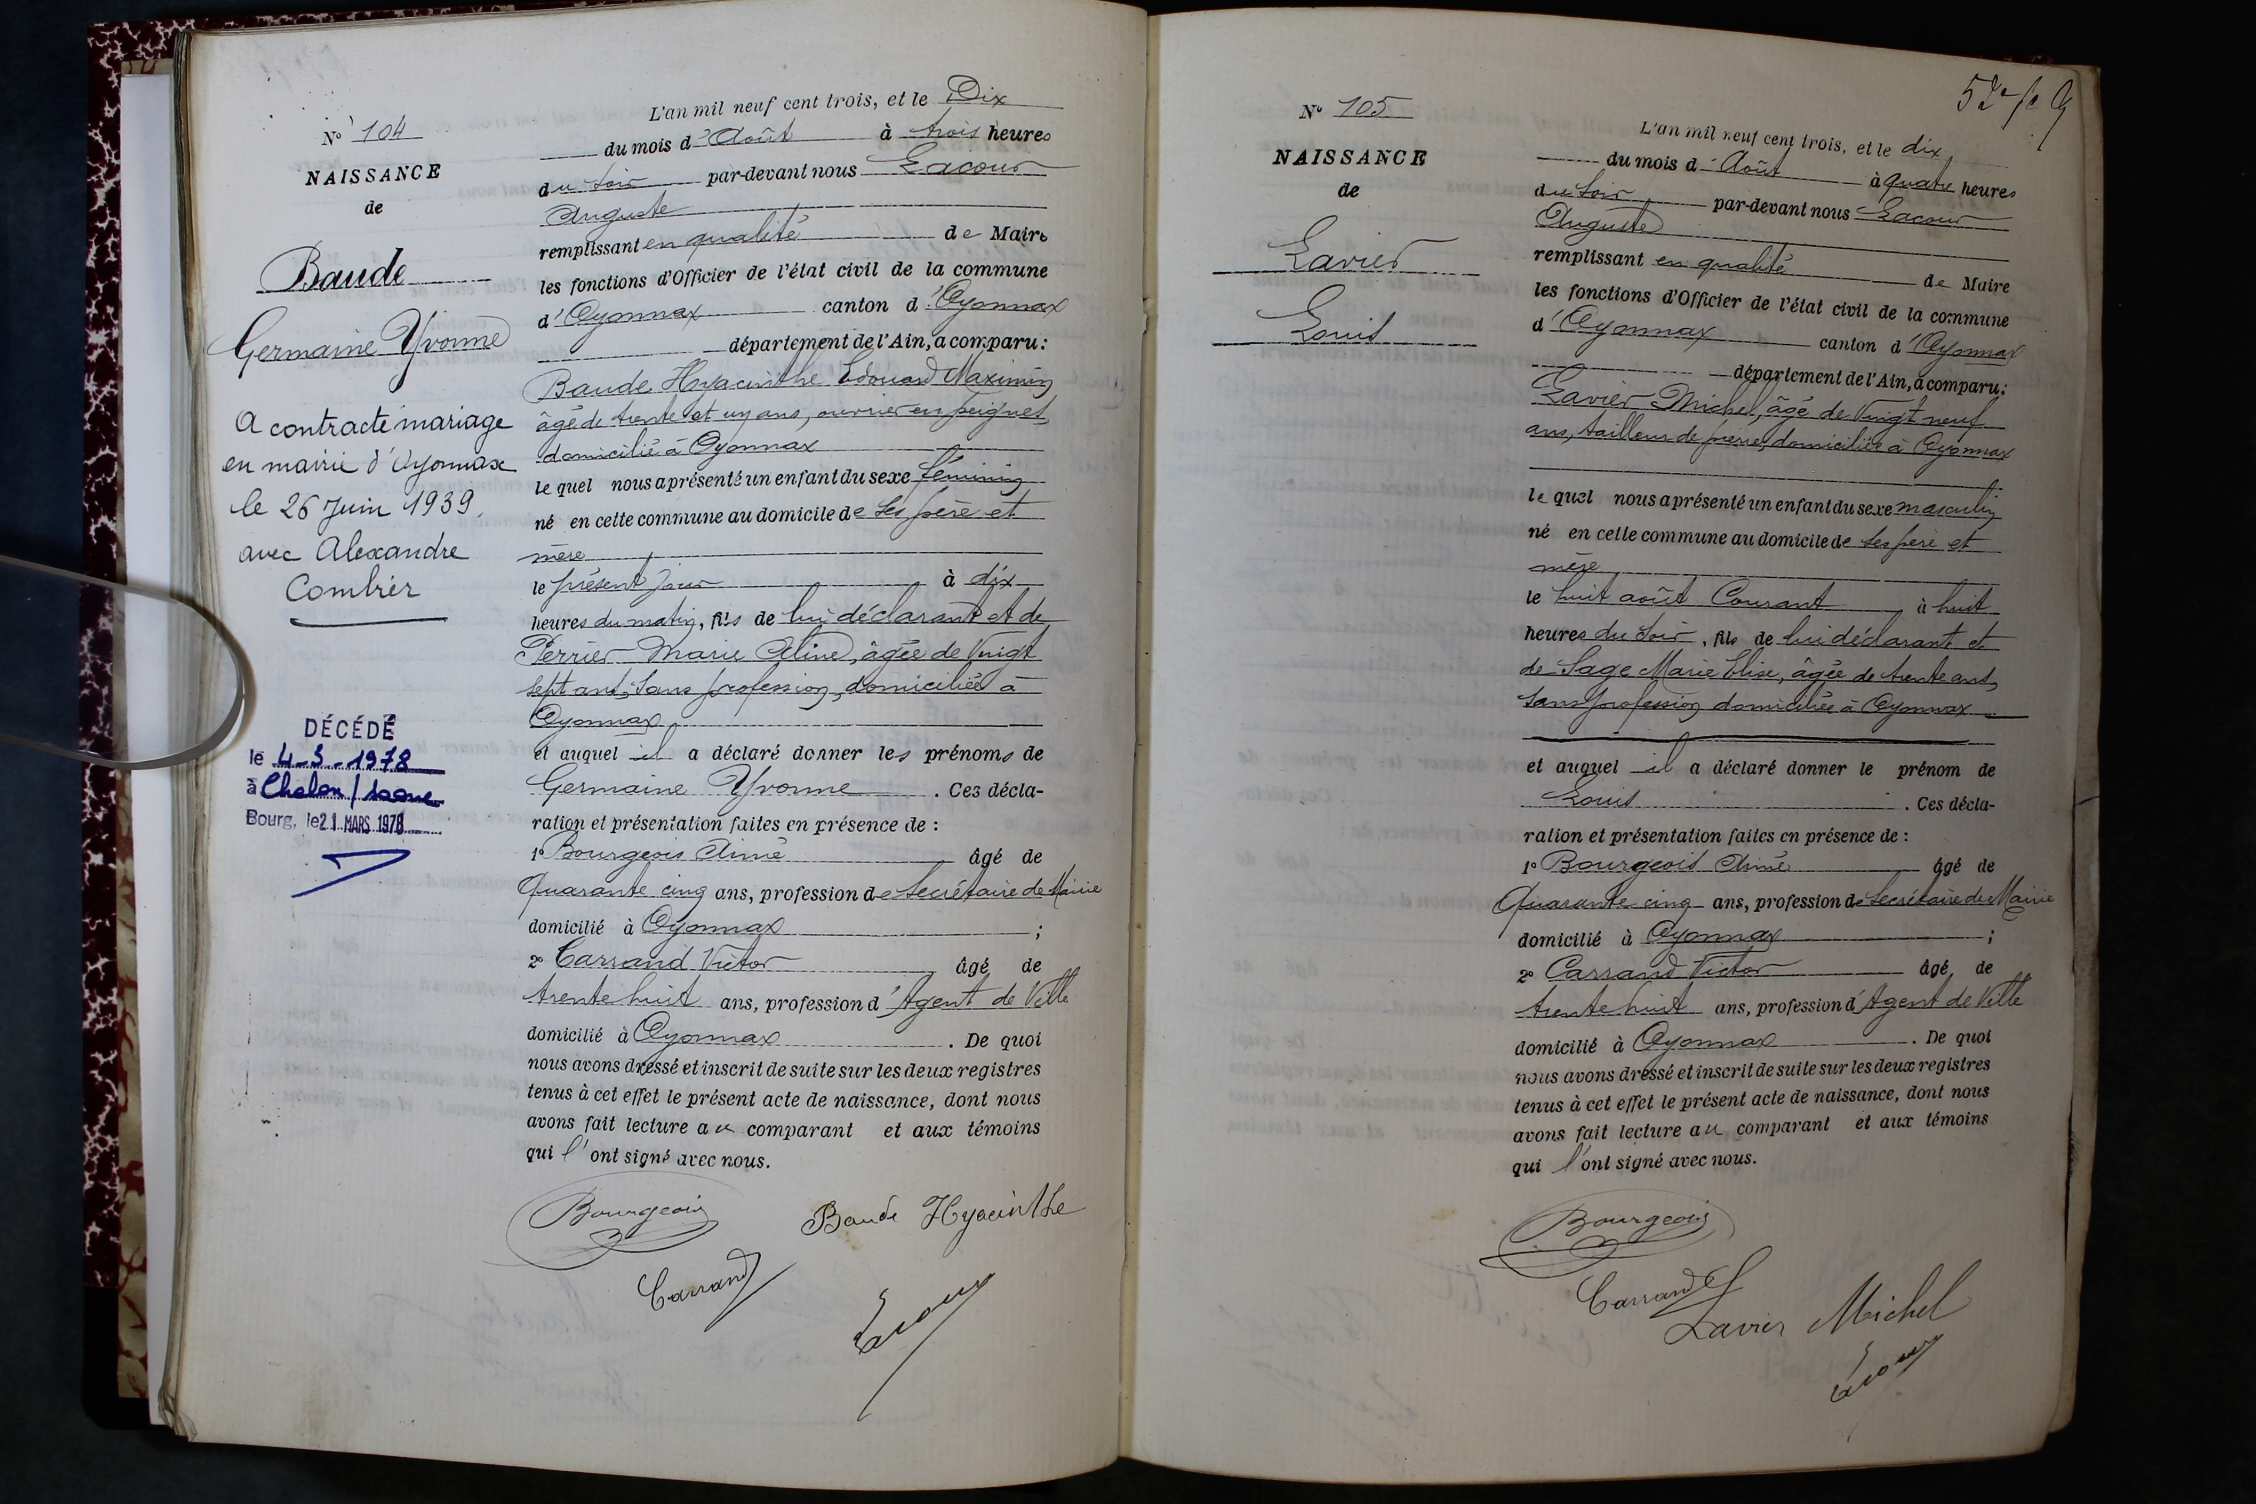 N° 104
NAISSANCE
de
Baude
Germaine Yvonne
A contracté mariage
en mairie d'Oyonnax
le 26 Juin 1939
avec Alexandre
Combrer
DÉCÉDÉ
le 4-3-1978
à Chalon/Saone
Bourg, le 21 MARS 1978
L'an mil neuf cent trois, et le Dix
du mois d'Août à trois heures
du soir par-devant nous Lacour
Auguste
remplissant en qualité de Maire
les fonctions d'Officier de l'état civil de la commune
d'Oyonnax canton d'Oyonnax
département de l'Ain, a comparu:
Baude Hyacinthe Edouard Maximin
âgé de trente et un ans, ouvrier en peignes,
domicilié à Oyonnax
le quel nous a présenté un enfant du sexe féminin
né en cette commune au domicile de ses père et
mère
le présent jour à dix
heures du matin, fils de lui déclarant et de
Perrier Marie Céline, âgée de Vingt
sept ans, sans profession, domiciliée à
Oyonnax
et auquel il a déclaré donner les prénoms de
Germaine Yvonne. Ces décla-
ration et présentation faites en présence de :
1° Bourgeois Aimé âgé de
Quarante cinq ans, profession de Secrétaire de Mairie
domicilié à Oyonnax ;
2° Carrand Victor âgé de
trente huit ans, profession d'Agent de Ville
domicilié à Oyonnax. De quoi
nous avons dressé et inscrit de suite sur les deux registres
tenus à cet effet le présent acte de naissance, dont nous
avons fait lecture au comparant et aux témoins
qui l'ont signé avec nous.
Bourgeois Baude Hyacinthe
Carrand
Lacour
N° 105
NAISSANCE
de
Lavier
Louis
L'an mil neuf cent trois, et le dix
du mois d'Août à quatre heures
du soir par-devant nous Lacour
Auguste
remplissant en qualité de Maire
les fonctions d'Officier de l'état civil de la commune
d'Oyonnax canton d'Oyonnax
département de l'Ain, a comparu:
Lavier Michel, âgé de Vingt neuf
ans, tailleur de pierre, domiciliée à Oyonnax
le quel nous a présenté un enfant du sexe masculin
né en cette commune au domicile de ses père et
mère
le huit août Courant à huit
heures du soir, fils de lui déclarant et
de Sage Marie Elise, âgée de trente ans,
sans profession domiciliée à Oyonnax
et auquel il a déclaré donner le prénom de
Louis. Ces décla-
ration et présentation faites en présence de :
1° Bourgeois Aimé âgé de
Quarante cinq ans, profession de Secrétaire de Mairie
domicilié à Oyonnax ;
2° Carrand Victor âgé de
trente huit ans, profession d'Agent de Ville
domicilié à Oyonnax. De quoi
nous avons dressé et inscrit de suite sur les deux registres
tenus à cet effet le présent acte de naissance, dont nous
avons fait lecture au comparant et aux témoins
qui l'ont signé avec nous.
Bourgeois
Carrand
Lavier Michel
Lacour